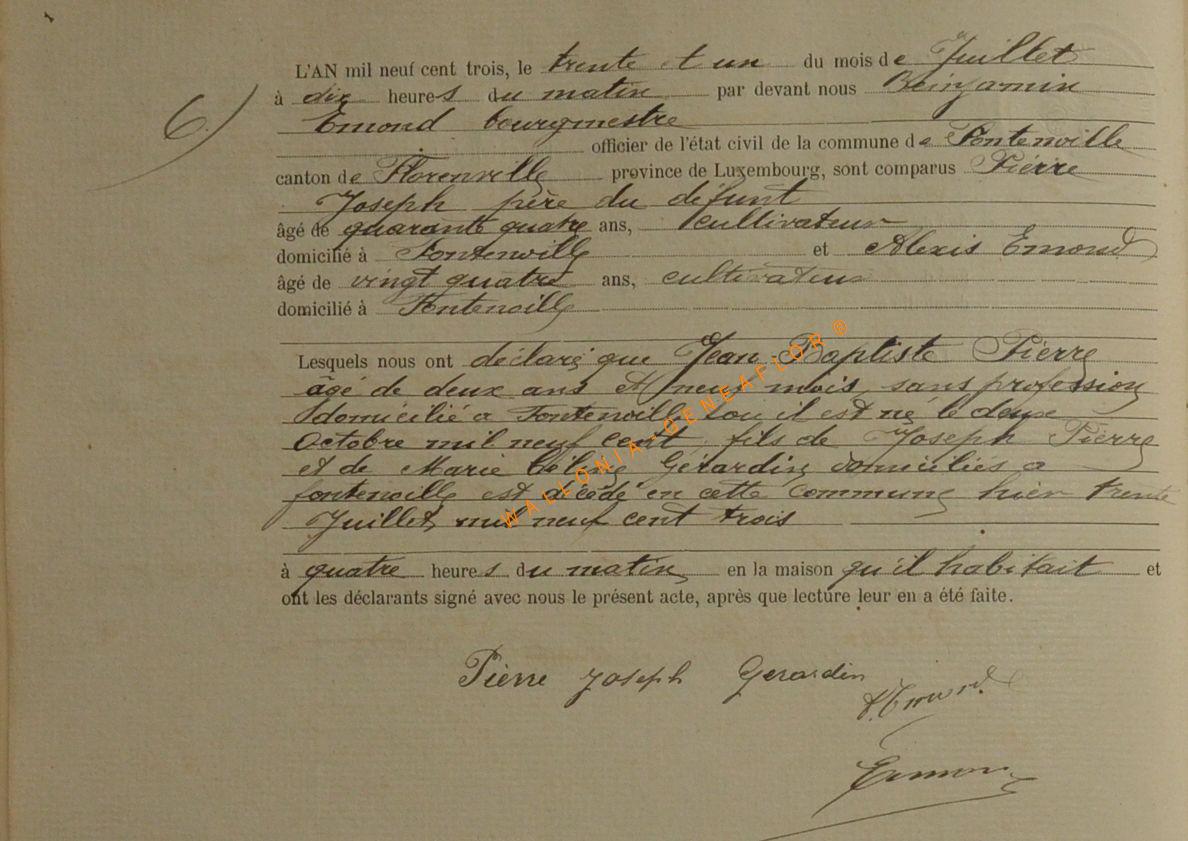 6)
L'AN mil neuf cent trois, le trente et un du mois de Juillet
à dix heures du matin par devant nous Beinjamin
Emond bourgmestre
officier de l'état civil de la commune de Fontenoille
canton de Florenville province de Luxembourg, sont comparus Pierre
Joseph père du défunt
âgé de quarante quatre ans, cultivateur
domicilié à Fontenoille et Alexis Emond
âgé de vingt quatre ans, cultivateur
domicilié à Fontenoille
Lesquels nous ont déclaré que Jean Baptiste Pierre
âgé de deux ans et neuf mois, sans profession
domicilié à Fontenoille où il est né le deux
Octobre mil neuf cent, fils de Joseph Pierre
et de Marie Céline Gérardin domiciliés à
fontenoille est décédé en cette commune hier trente
Juillet mil neuf cent trois
à quatre heures du matin en la maison qu'il habitait et
ont les déclarants signé avec nous le présent acte, après que lecture leur en a été faite.
WALLONIA-GENEAFLOR®
Pierre Joseph Gerardin
A. Emond
Emond